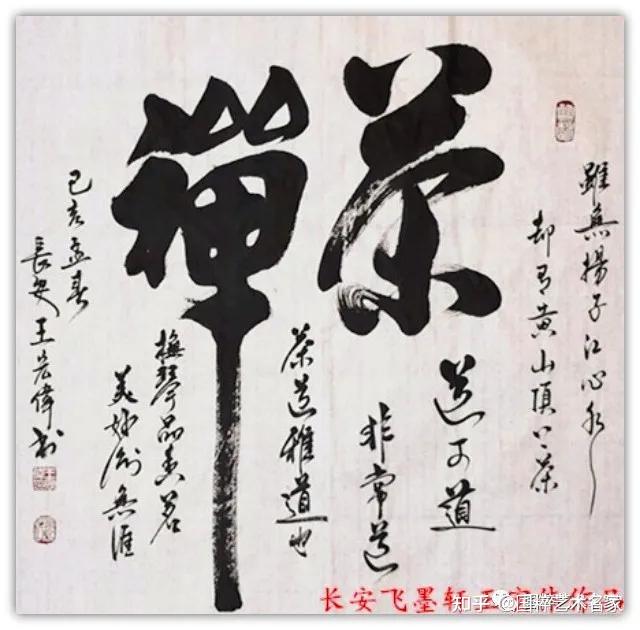 雖無揚子江心水
却有黄山頂上茶
茶禪
道可道
非常道
茶道雅道也
撫琴品香茗
美妙無涯
己亥孟春
長安王宏偉書
长安飞墨轩 王宏伟作品
知乎 @国粹艺术名家